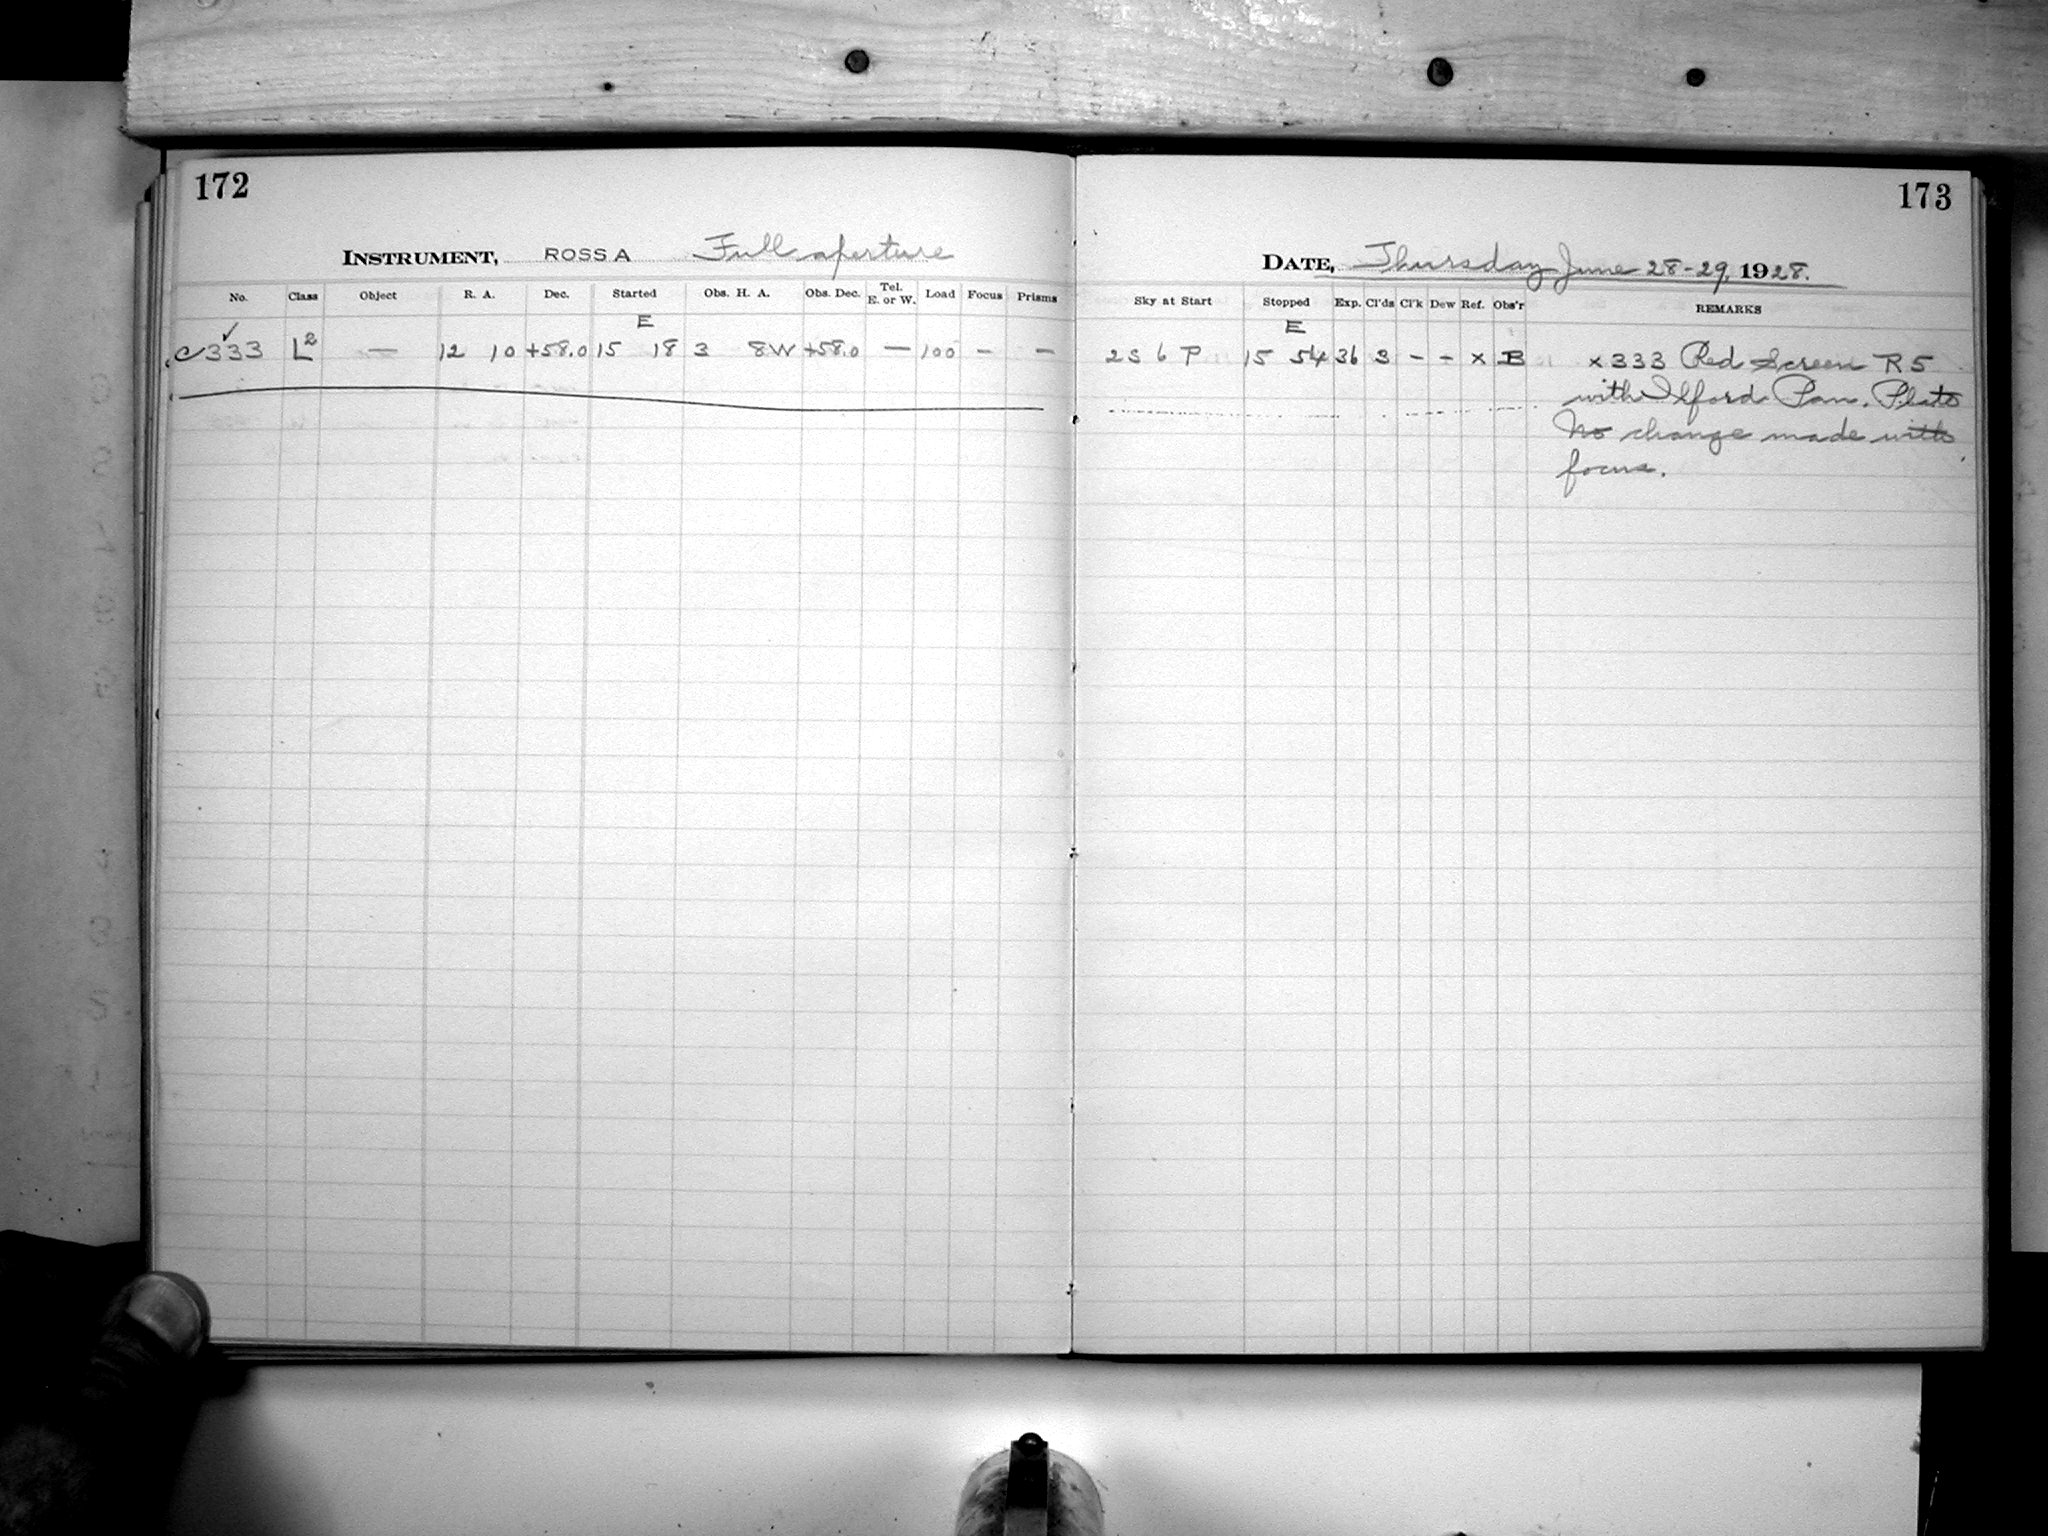 172
INSTRUMENT, ROSS A Full aperture
No. Class Object R. A. Dec. Started Obs. H. A. Obs. Dec. Tel. E. or W. Load Focus Prisms
E
C333 ✓ L² — 12 10 +58.0 15 18 3 8W +58.0 — 100 – –
173
DATE, Thursday June 28-29, 1928.
Sky at Start Stopped Exp. Cl'ds Cl'k Dew Ref. Obs'r REMARKS
E
2 S 6 P 15 54 36 3 – – x B x333 Red Screen R5
with Ilford Pan. Plate
No change made with
focus.